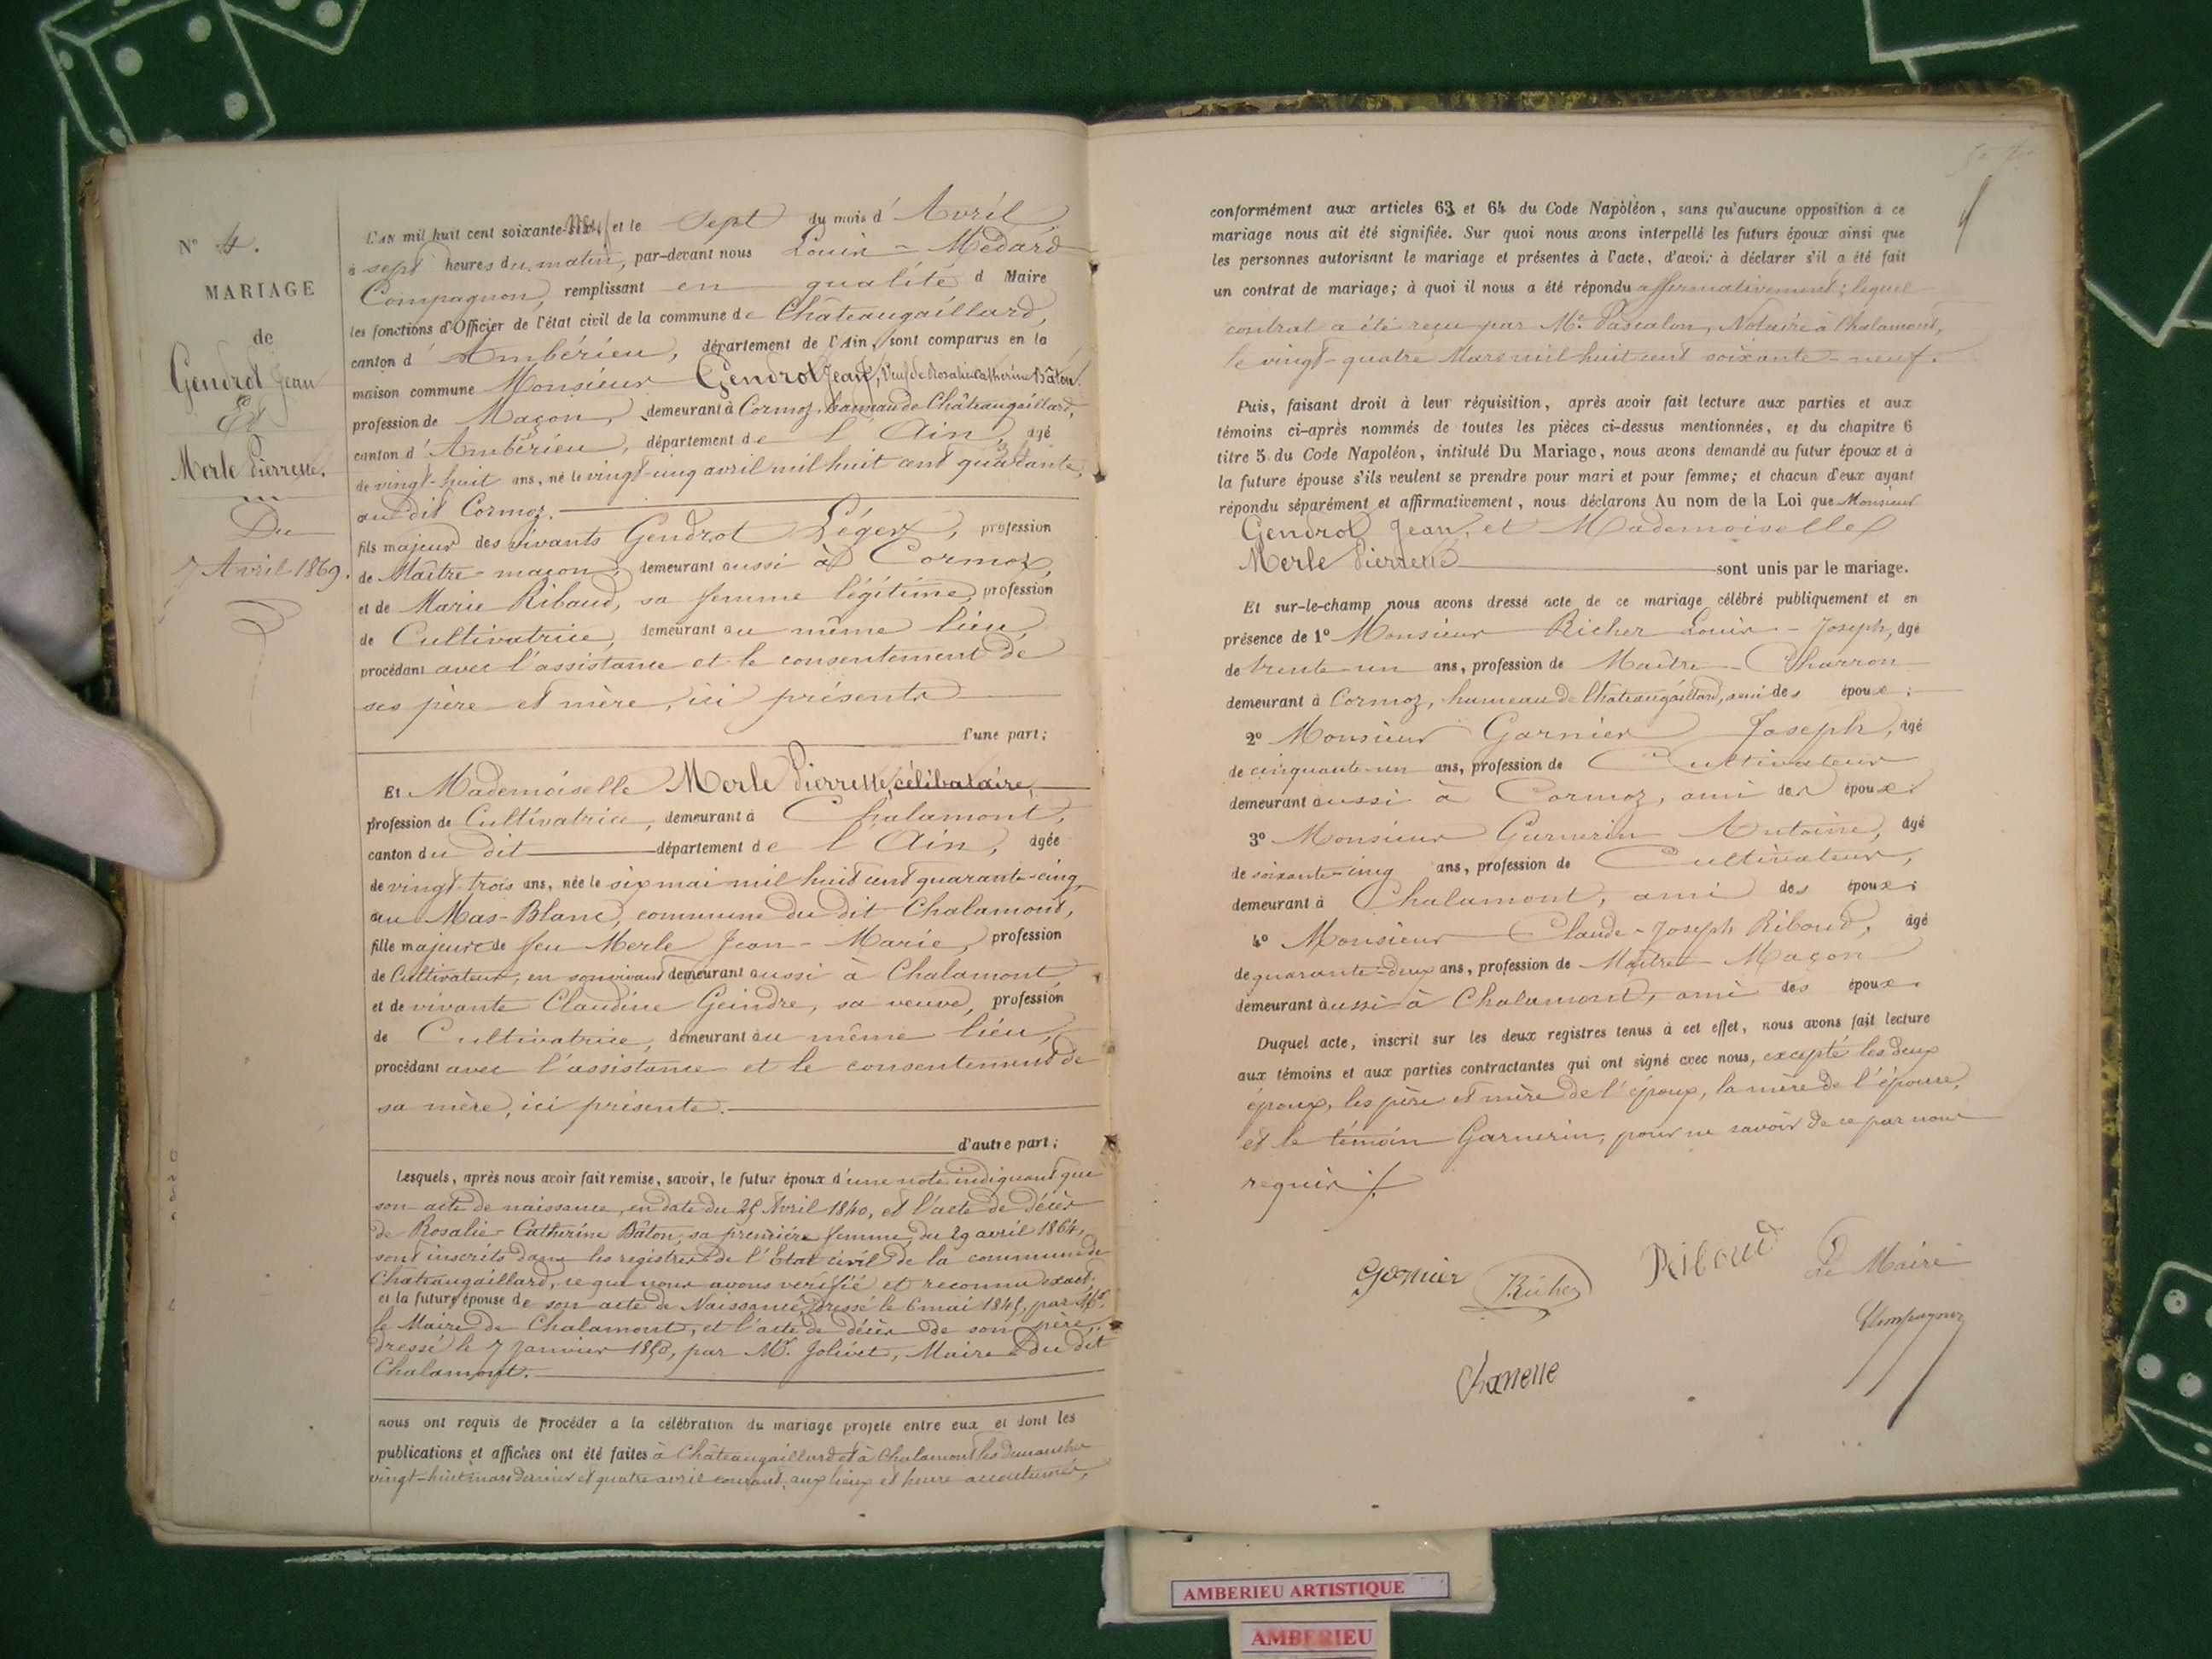 N° 4.
MARIAGE
de
Gendrot Jean
Et
Merle Pierrette.
Du
7 Avril 1869.
L'AN mil huit cent soixante-neuf et le Sept du mois d'Avril
à sept heures du matin, par-devant nous Louis-Médard
Compagnon, remplissant en qualité d Maire
les fonctions d'Officier de l'état civil de la commune de Châteaugaillard,
canton d'Ambérieu, département de l'Ain, sont comparus en la
maison commune Monsieur Gendrot Jean, Veuf de Rosalie Catherine Bâton.
profession de Maçon, demeurant à Cormoz, hameau de Châteaugaillard,
canton d'Ambérieu, département de l'Ain, âgé
de vingt-huit ans, né le vingt-cinq avril mil huit cent quarante,
au dit Cormoz.
fils majeur des vivants Gendrot Léger, profession
de Maître-maçon, demeurant aussi à Cormoz,
et de Marie Ribaud, sa femme légitime, profession
de Cultivatrice, demeurant au même lieu,
procédant avec l'assistance et le consentement de
ses père et mère, ici présents
d'une part;
Et Mademoiselle Merle Pierrette, célibataire,
profession de Cultivatrice, demeurant à Chalamont,
canton du dit département de l'Ain, âgée
de vingt-trois ans, née le six mai mil huit cent quarante-cinq,
au Mas-Blanc, commune du dit Chalamont,
fille majeure de feu Merle Jean-Marie, profession
de Cultivateur, en son vivant demeurant aussi à Chalamont
et de vivante Claudine Geindre, sa veuve, profession
de Cultivatrice, demeurant au même lieu,
procédant avec l'assistance et le consentement de
sa mère, ici présente.
d'autre part;
Lesquels, après nous avoir fait remise, savoir, le futur époux d'une note indiquant que
son acte de naissance, en date du 25 Avril 1840, et l'acte de décès
de Rosalie-Catherine Bâton, sa première femme, du 29 avril 1864,
sont inscrits dans les registres de l'Etat civil de la commune de
Châteaugaillard, ce que nous avons vérifié et reconnu exact;
et la future épouse de son acte de Naissance, dressé le 6 mai 1845, par Mr
le Maire de Chalamont, et l'acte de décès de son père,
dressé le 7 Janvier 1850, par Mr. Jolivet, Maire du dit
Chalamont.
nous ont requis de procéder à la célébration du mariage projeté entre eux et dont les
publications et affiches ont été faites à Châteaugaillard et à Chalamont les dimanches
vingt-huit mars dernier et quatre avril courant, aux lieux et heure accoutumés,
conformément aux articles 63 et 64 du Code Napoléon, sans qu'aucune opposition à ce
mariage nous ait été signifiée. Sur quoi nous avons interpellé les futurs époux ainsi que
les personnes autorisant le mariage et présentes à l'acte, d'avoir à déclarer s'il a été fait
un contrat de mariage; à quoi il nous a été répondu affirmativement; lequel
contrat a été reçu par Me. Pascalon, Notaire à Chalamont,
le vingt-quatre Mars mil huit cent soixante-neuf.
Puis, faisant droit à leur réquisition, après avoir fait lecture aux parties et aux
témoins ci-après nommés de toutes les pièces ci-dessus mentionnées, et du chapitre 6
titre 5 du Code Napoléon, intitulé Du Mariage, nous avons demandé au futur époux et à
la future épouse s'ils veulent se prendre pour mari et pour femme; et chacun d'eux ayant
répondu séparément et affirmativement, nous déclarons Au nom de la Loi que Monsieur
Gendrot Jean, et Mademoiselle
Merle Pierrette sont unis par le mariage.
Et sur-le-champ nous avons dressé acte de ce mariage célébré publiquement et en
présence de 1° Monsieur Richer Louis-Joseph, âgé
de trente-un ans, profession de Maître-Charron
demeurant à Cormoz, hameau de Châteaugaillard, ami des époux;
2° Monsieur Garnier Joseph, âgé
de cinquante-un ans, profession de Cultivateur
demeurant aussi à Cormoz, ami des époux;
3° Monsieur Garnerin Antoine, âgé
de soixante-cinq ans, profession de Cultivateur,
demeurant à Chalamont, ami des époux;
4° Monsieur Claude-Joseph Riboud, âgé
de quarante-deux ans, profession de Maître-Maçon
demeurant aussi à Chalamont, ami des époux.
Duquel acte, inscrit sur les deux registres tenus à cet effet, nous avons fait lecture
aux témoins et aux parties contractantes qui ont signé avec nous, excepté les deux
époux, les père et mère de l'époux, la mère de l'épouse,
et le témoin Garnerin, pour ne savoir de ce par nous
requis
Garnier Richer Riboud Le Maire
Compagnon
Chanelle
AMBERIEU ARTISTIQUE
AMBERIEU